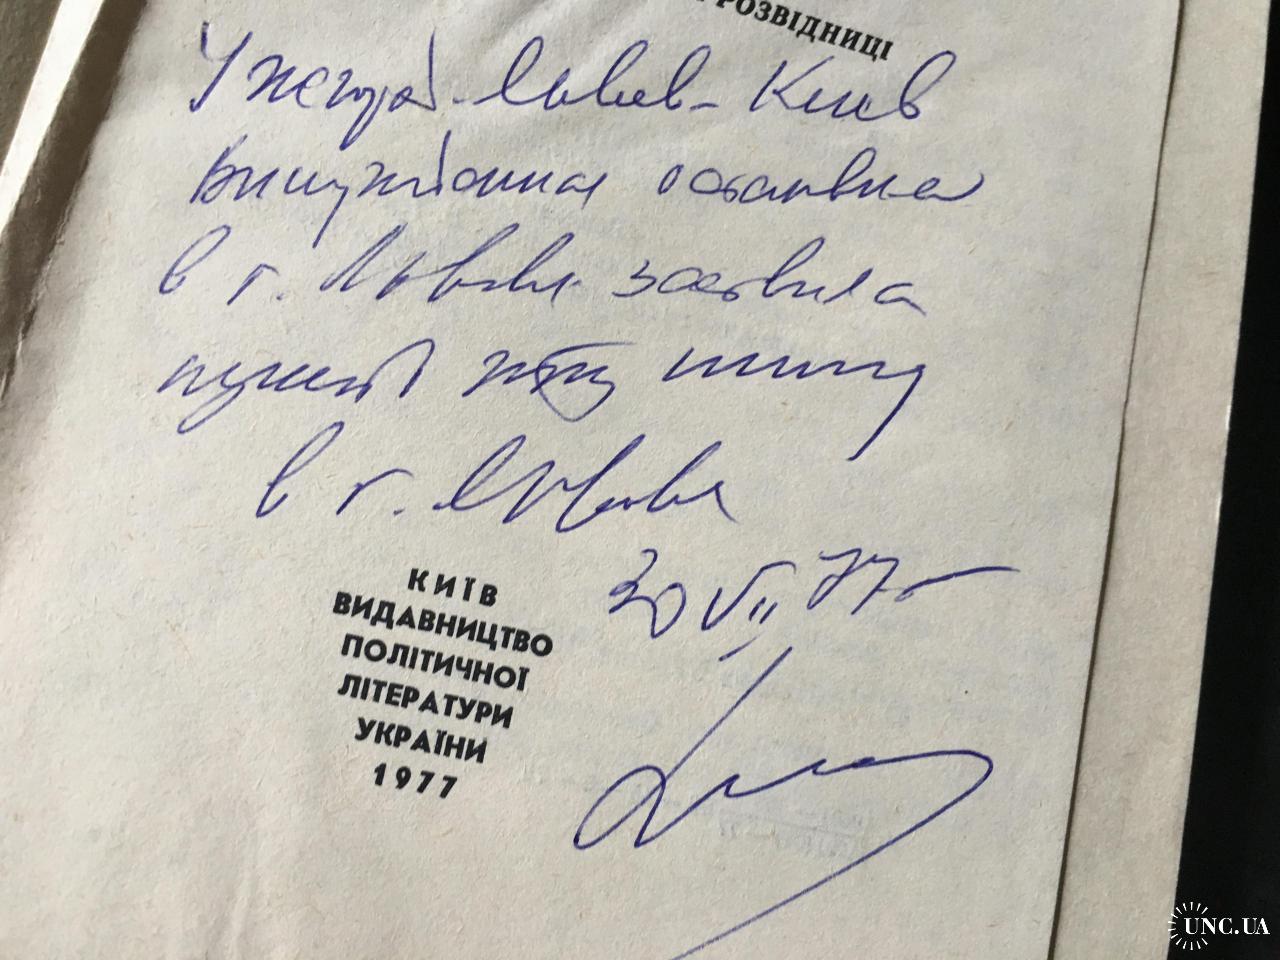 РОЗВІДНИЦІ
Ужгород-Львов-Киев
Вынужденная остановка
в г. Львове заставила
купить эту книгу
в г. Львове
30 VII 77 г
КИЇВ
ВИДАВНИЦТВО
ПОЛІТИЧНОЇ
ЛІТЕРАТУРИ
УКРАЇНИ
1977
UNC.UA